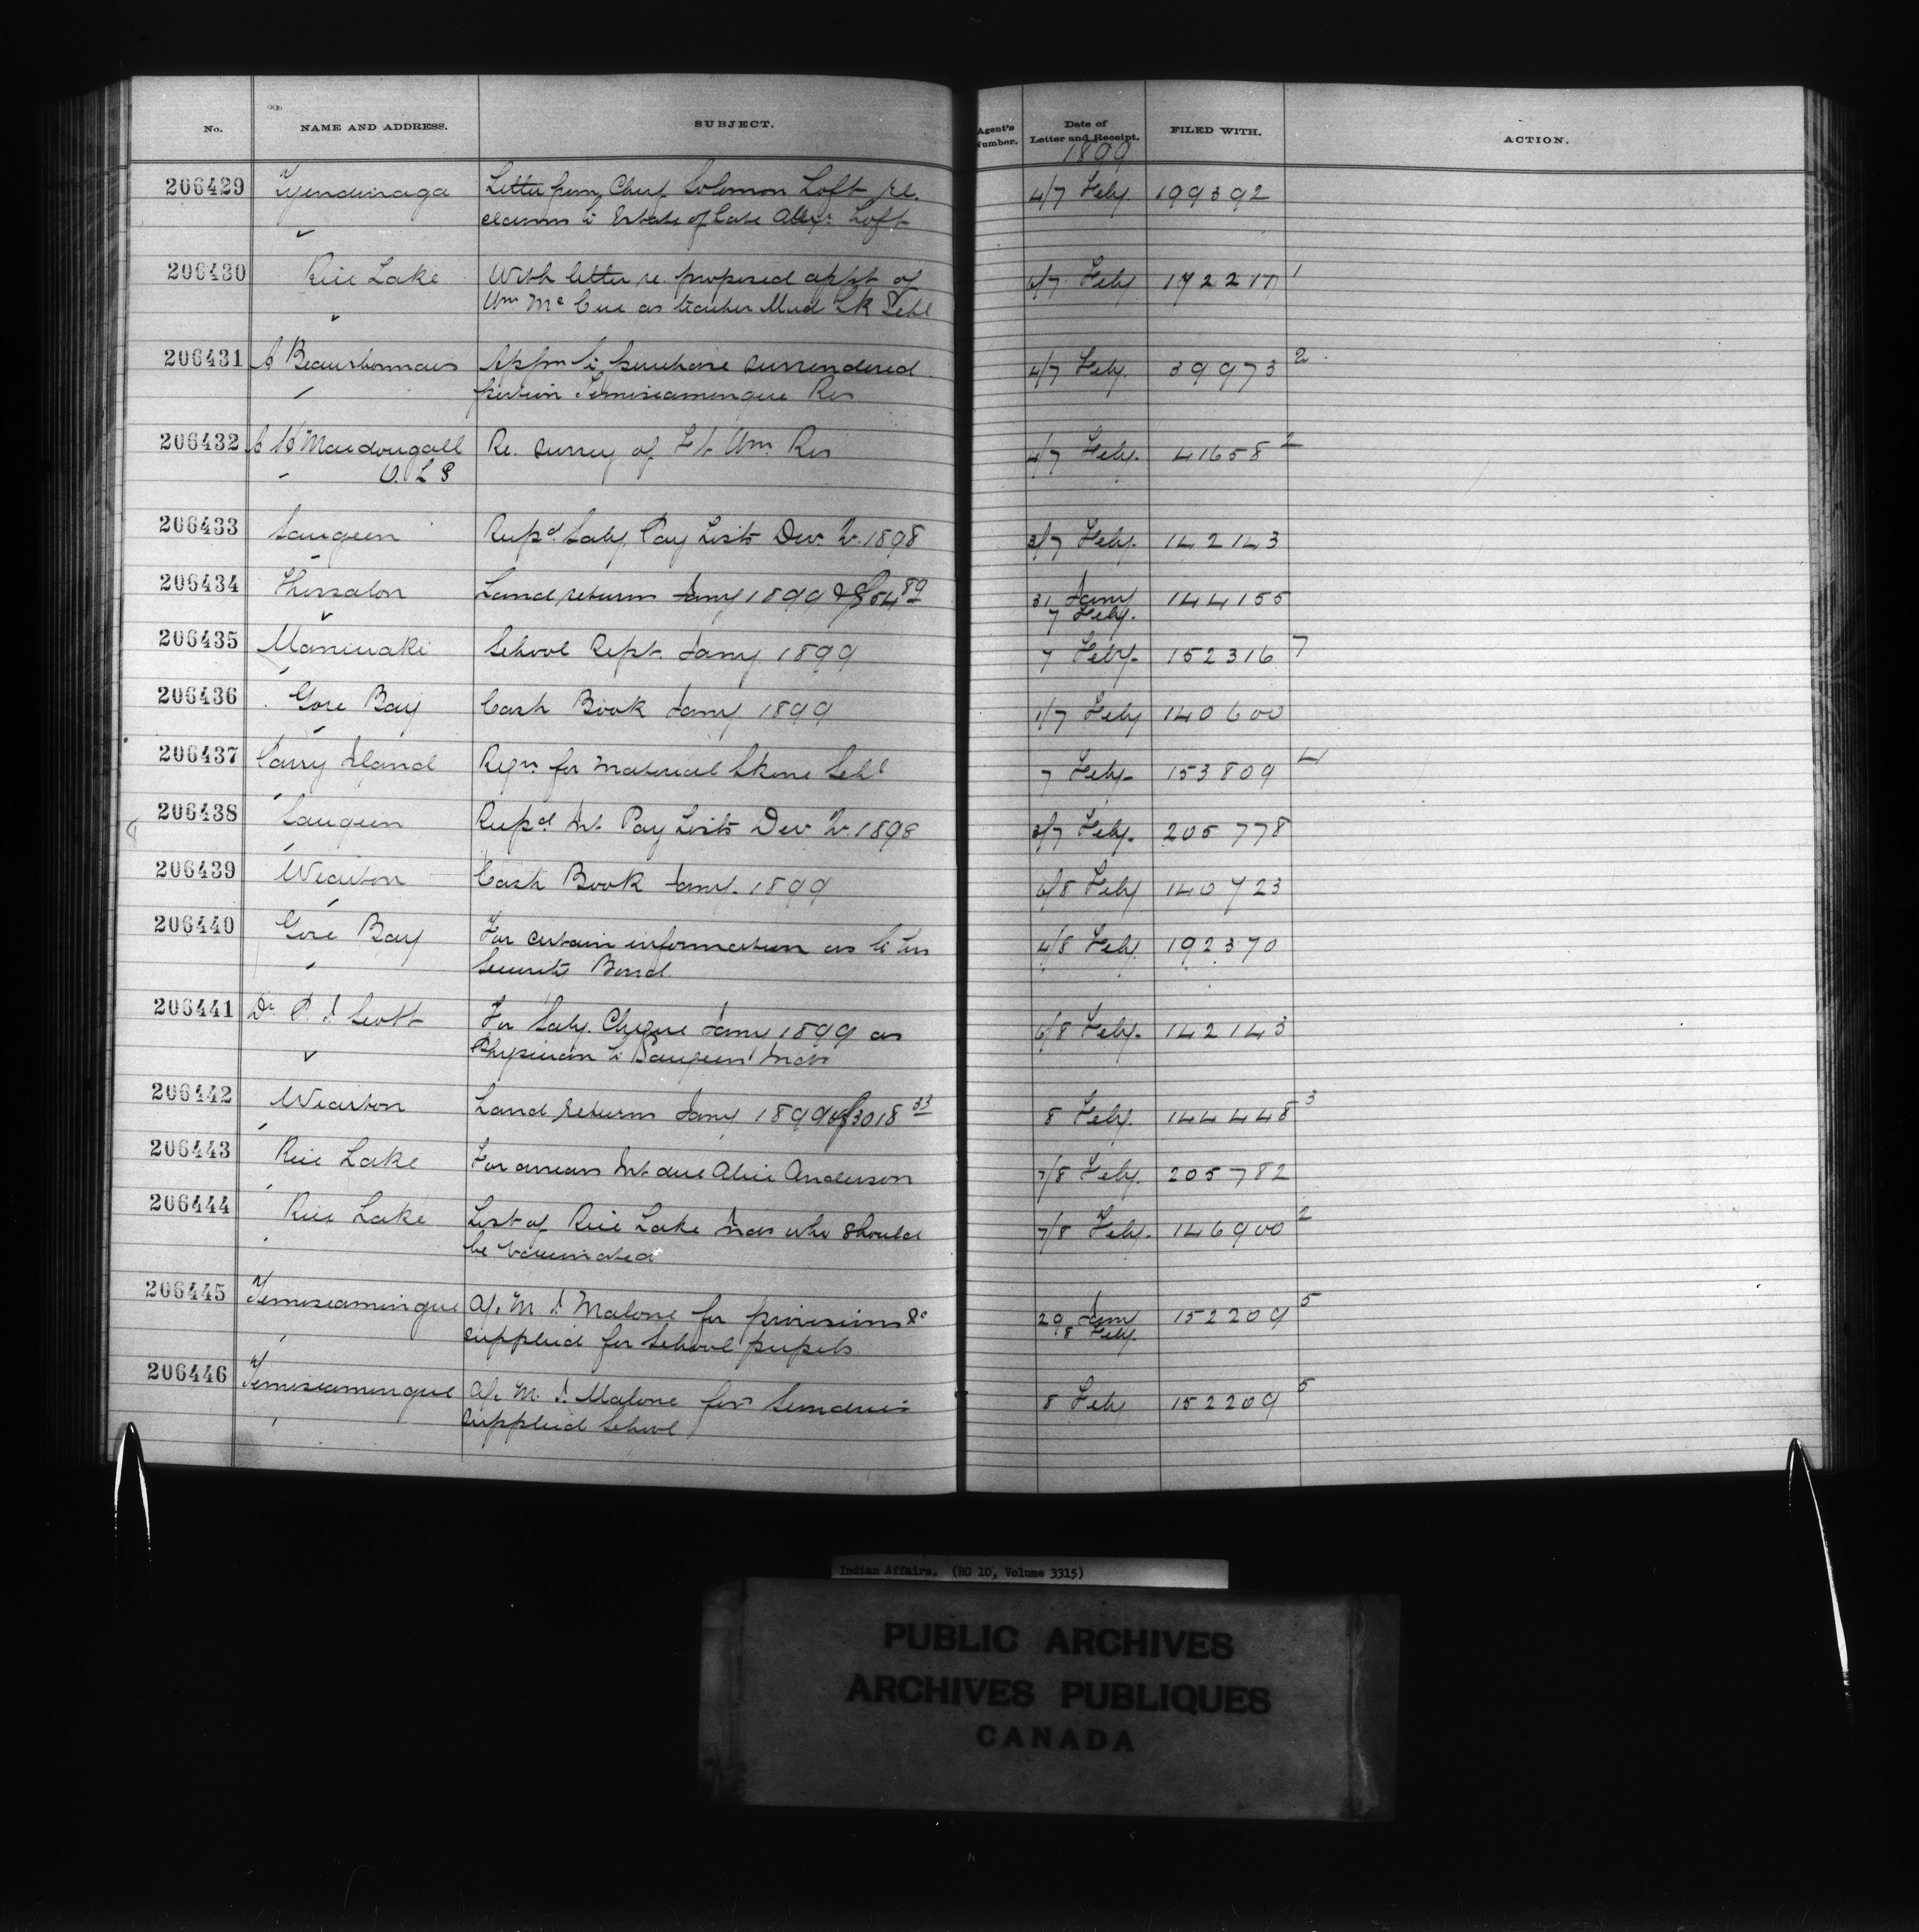 No. NAME AND ADDRESS. SUBJECT. Agent's Number. Date of Letter and Receipt. FILED WITH. ACTION.
1899
206429 Tyendinaga Letter from Chief Solomon Loft re. 4/7 Feby 199392
claims to Estate of late Alexr. Loft
206430 Rice Lake With letter re. proposed appt of 6/7 Feby 192217 1
Wm McCue as teacher Mud Lk Schl
206431 Appln to purchase surrendered 4/7 Feby. 39973 2
portion Temiscamengue Res
206432 Macdougall Re. survey of Ft. Wm. Res 4/7 Feby. 41658 2
O. L. S
206433 Saugeen Recpd Saly. Pay Lists Dec. Qr. 1898 3/7 Feby. 142143
206434 Thessalon Land returns Jany 1899 & $54 89 31 Jany 144155
7 Feby.
206435 Maniwaki School Rept. Jany 1899 7 Feby. 152316 7
206436 Gore Bay Cash Book Jany. 1899 1/7 Feby 140600
206437 Parry Island Reqn. for material Skene Schl 7 Feby. 153809 4
206438 Saugeen Recpd Int. Pay Lists Dec Qr. 1898 3/7 Feby. 205778
206439 Wiarton Cash Book Jany. 1899 6/8 Feby 140723
206440 Gore Bay For certain information as to his 4/8 Feby. 192370
Security Bond.
206441 Dr. P. J. Scott For Saly. Cheque Jany 1899 as 6/8 Feby. 142143
Physician to Saugeen Inds
206442 Wiarton Land returns Jany 1899 & $3018 33 8 Feby. 144448 3
206443 Rice Lake For arrears Int due Alice Anderson 7/8 Feby. 205782
206444 Rice Lake List of Rice Lake Inds who should 7/8 Feby. 146900 2
be vaccinated
206445 Temiscamingue a/c M. J. Malone for provisions &c 29 Jany 152209 5
supplied for School pupils 8 Feby.
206446 Temiscamengue a/c M. J. Malone for Sundries 8 Feby 152209 5
supplied School
Indian Affairs. (RG 10, Volume 3315)
PUBLIC ARCHIVES
ARCHIVES PUBLIQUES
CANADA